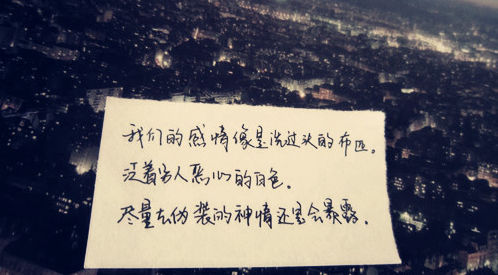 我们的感情像是洗过头的布匹。
泛着另人恶心的白色。
尽量去伪装的神情还是会暴露。